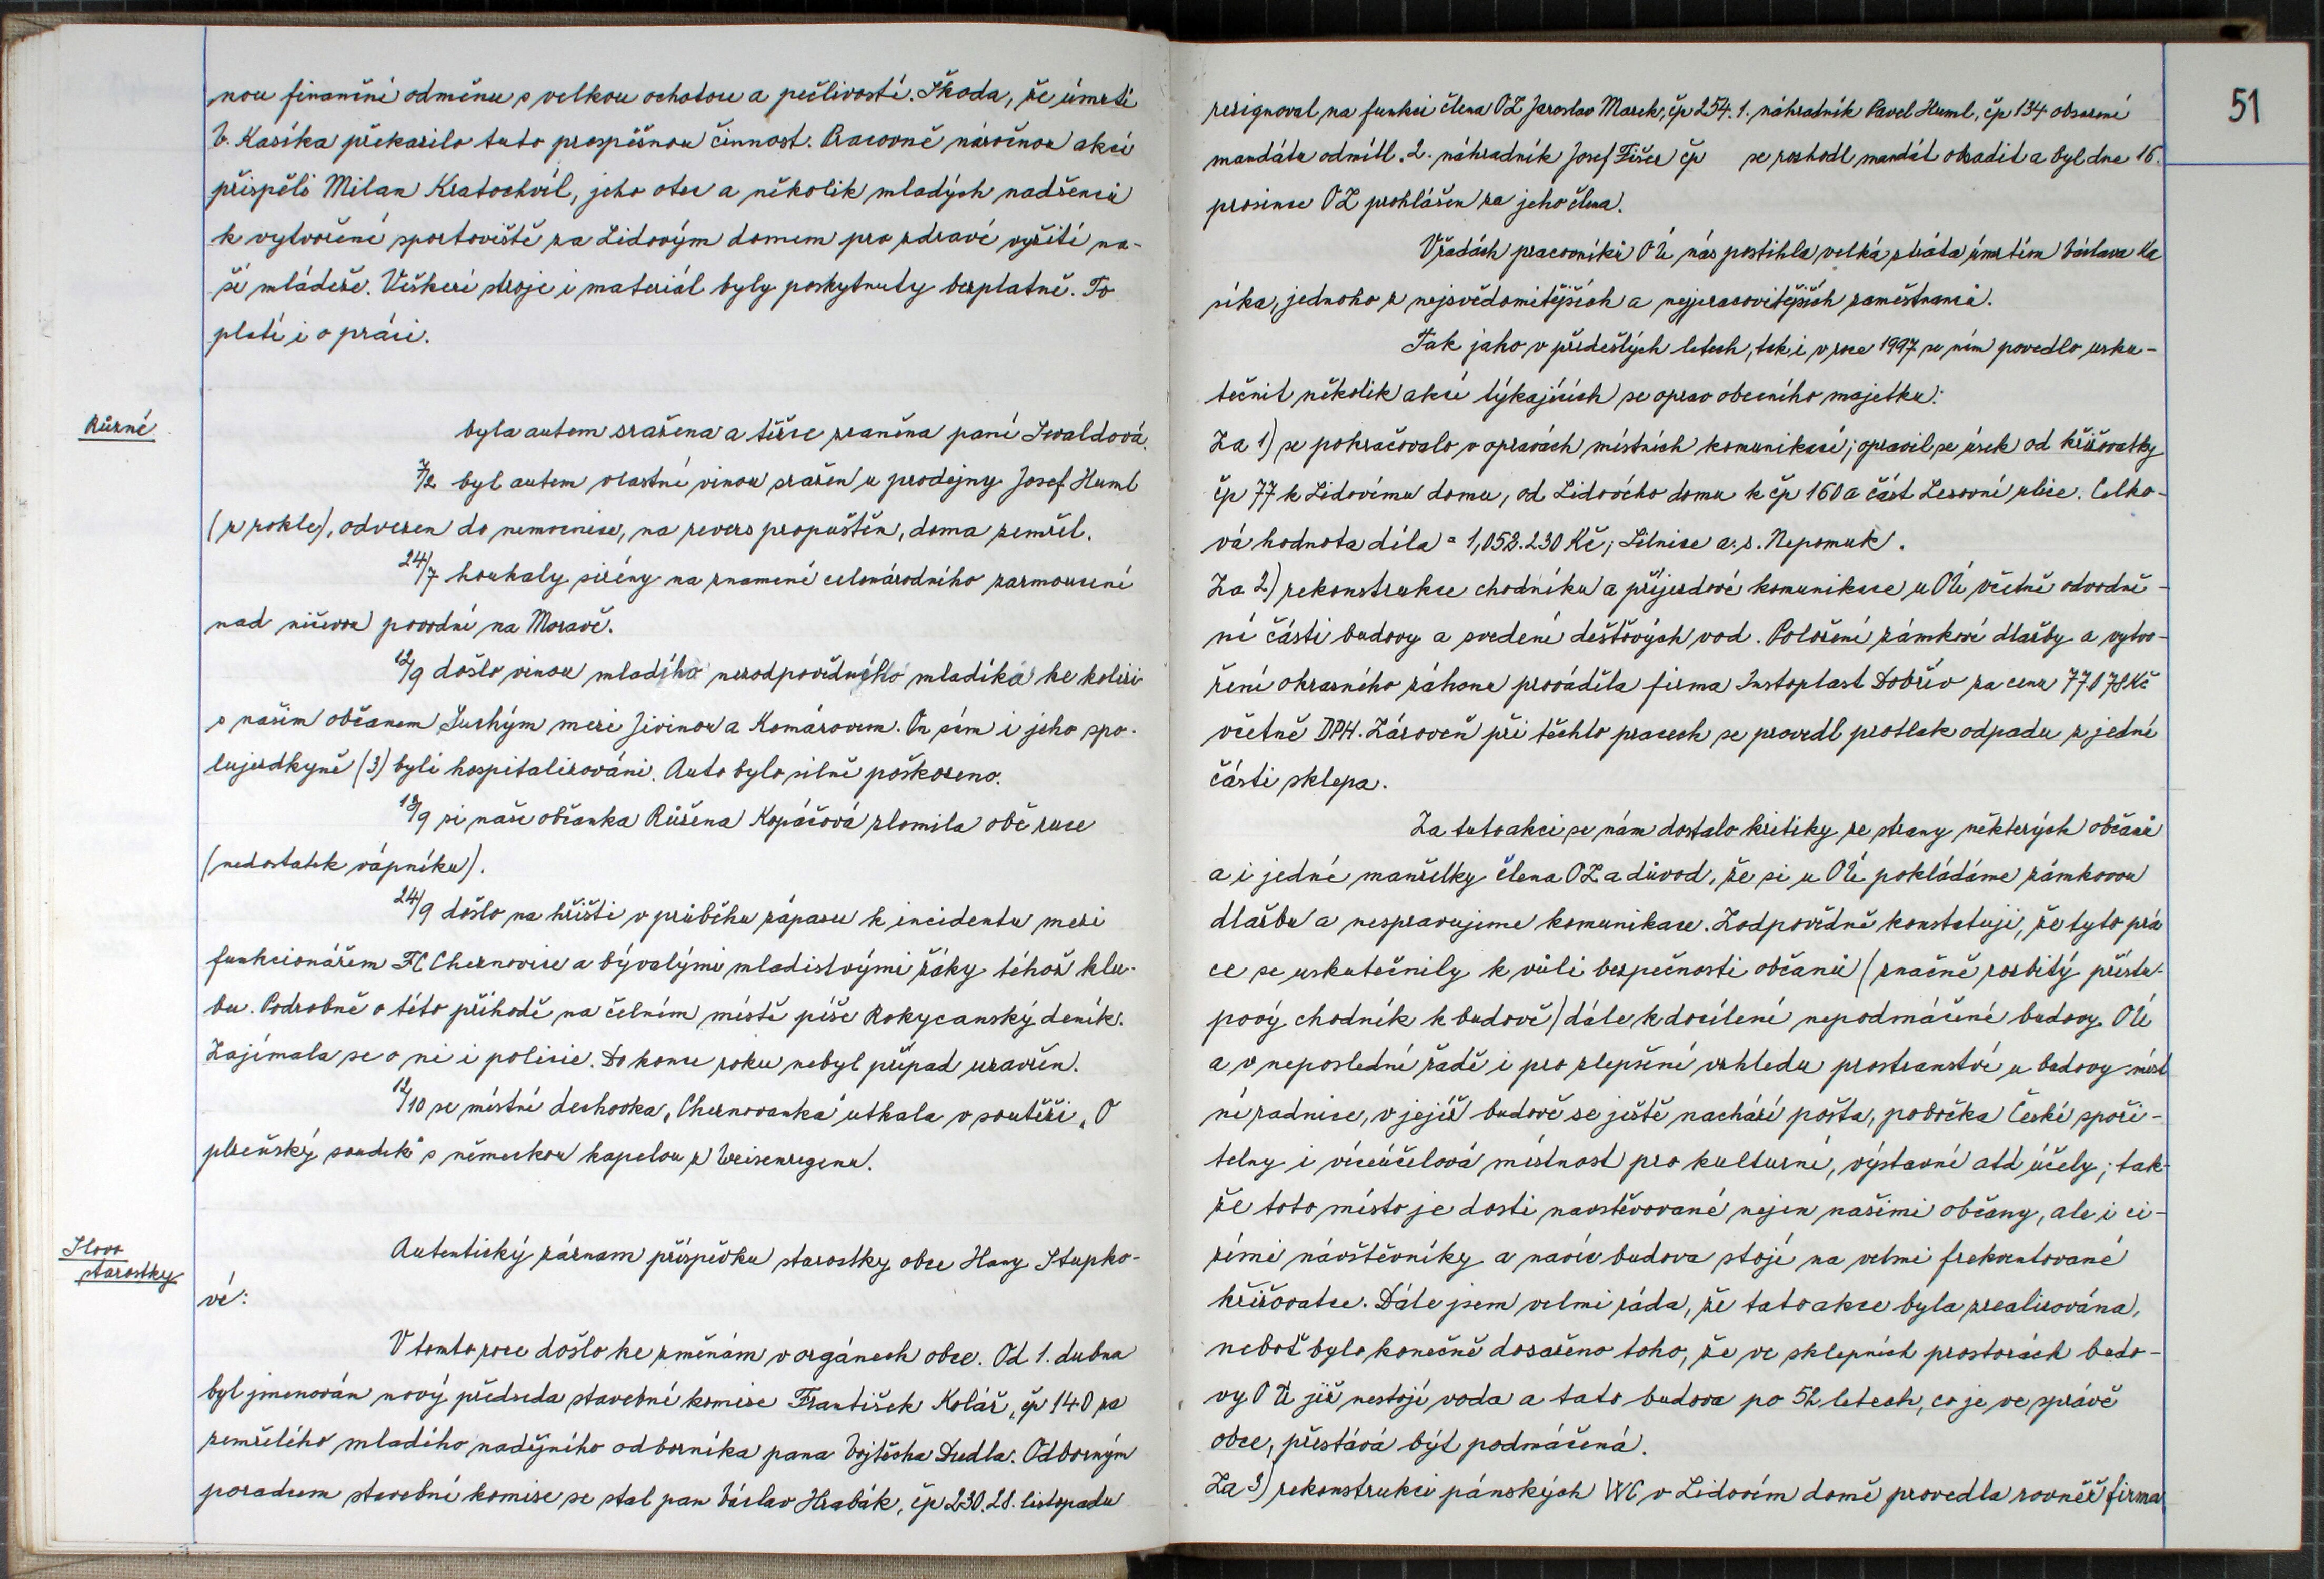 nou finanční odměnu s velkou ochotou a pečlivostí. Škoda, že úmrtí
V. Kasíka překazilo tuto prospěšnou činnost. Pracovně náročnou akcí
přispěli Milan Kratochvíl, jeho otec a několik mladých nadšenců
k vytvoření sportoviště za Lidovým domem pro zdravé vyžití na-
ší mládeže. Veškeré stroje i materiál byly poskytnuty bezplatně. To
platí i o práci.
Různé
byla autem sražena a těžce zraněna paní Ewaldová.
7/2 byl autem vlastní vinou sražen u prodejny Josef Huml
(z rokle), odvezen do nemocnice, na revers propuštěn, doma zemřel.
24/7 houkaly sirény na znamení celonárodního zarmoucení
nad ničivou povodní na Moravě.
12/9 došlo vinou mladého nezodpovědného mladíka ke kolizi
s naším občanem Suchým mezi Jivinou a Komárovem. On sám i jeho spo-
lujezdkyně (3) byli hospitalizováni. Auto bylo silně poškozeno.
18/9 si naše občanka Růžena Kopáčová zlomila obě ruce
(nedostatek vápníku).
24/9 došlo na hřišti v průběhu zápasu k incidentu mezi
funkcionářem FC Cheznovice a bývalými mladistvými žáky téhož klu-
bu. Podrobně o této příhodě na čelném místě píše Rokycanský deník.
Zajímala se o ni i policie. Do konce roku nebyl případ uzavřen.
12/10 se místní dechovka „Cheznovanka" utkala v soutěži „O
plzeňský soudek" s německou kapelou z Weisenregenu.
Slovo
starostky
Autentický záznam příspěvku starostky obce Hany Stupko-
vé:
V tomto roce došlo ke změnám v orgánech obce. Od 1. dubna
byl jmenován nový předseda stavební komise František Kolář, čp 140 za
zemřelého mladého nadějného odborníka pana Vojtěcha Dudla. Odborným
poradcem stavební komise se stal pan Václav Hrabák, čp 230. 28. listopadu
51
rezignoval na funkci člena OZ Jaroslav Marek, čp 254. 1. náhradník Pavel Huml, čp 134 obsazení
mandátu odmítl. 2. náhradník Josef Fišer čp se rozhodl mandát obsadit a byl dne 16.
prosince OZ prohlášen za jeho člena.
V řadách pracovníků OÚ nás postihla velká ztráta úmrtím Václava Ka
síka, jednoho z nejsvědomitějších a nejpracovitějších zaměstnanců.
Tak jako v předešlých letech, tak i v roce 1997 se nám povedlo usku-
tečnit několik akcí týkajících se oprav obecního majetku:
Za 1) se pokračovalo v opravách místních komunikací; opravil se úsek od křižovatky
čp 77 k Lidovému domu, od Lidového domu k čp 160 a část Lesovní ulice. Celko-
vá hodnota díla = 1,058.230 Kč; Silnice a.s. Nepomuk.
Za 2) rekonstrukce chodníku a příjezdové komunikace u OÚ včetně odvodně-
ní části budovy a svedení dešťových vod. Položení zámkové dlažby a vytvo-
ření okrasného záhonu prováděla firma Instoplast Dobřív za cenu 77078 Kč
včetně DPH. Zároveň při těchto pracech se provedl protlak odpadu z jedné
části sklepa.
Za tuto akci se nám dostalo kritiky ze strany některých občanů
a i jedné manželky člena OZ a důvod, že si u OÚ pokládáme zámkovou
dlažbu a nespravujeme komunikace. Zodpovědně konstatuji, že tyto prá
ce se uskutečnily k vůli bezpečnosti občanů (značně rozbitý přístu-
pový chodník k budově) dále k docílení nepodmáčené budovy OÚ
a v neposlední řadě i pro zlepšení vzhledu prostranství u budovy míst
ní radnice, v jejíž budově se ještě nachází pošta, pobočka České spoři-
telny i víceúčelová místnost pro kulturní, výstavní atd účely; tak-
že toto místo je dosti navštěvované nejen našimi občany, ale i ci-
zími návštěvníky a navíc budova stojí na velmi frekventované
křižovatce. Dále jsem velmi ráda, že tato akce byla zrealizována,
neboť bylo konečně dosaženo toho, že ve sklepních prostorách budo-
vy OÚ již nestojí voda a tato budova po 52 letech, co je ve správě
obce, přestává být podmáčená.
Za 3) rekonstrukci pánských WC v Lidovém domě provedla rovněž firma